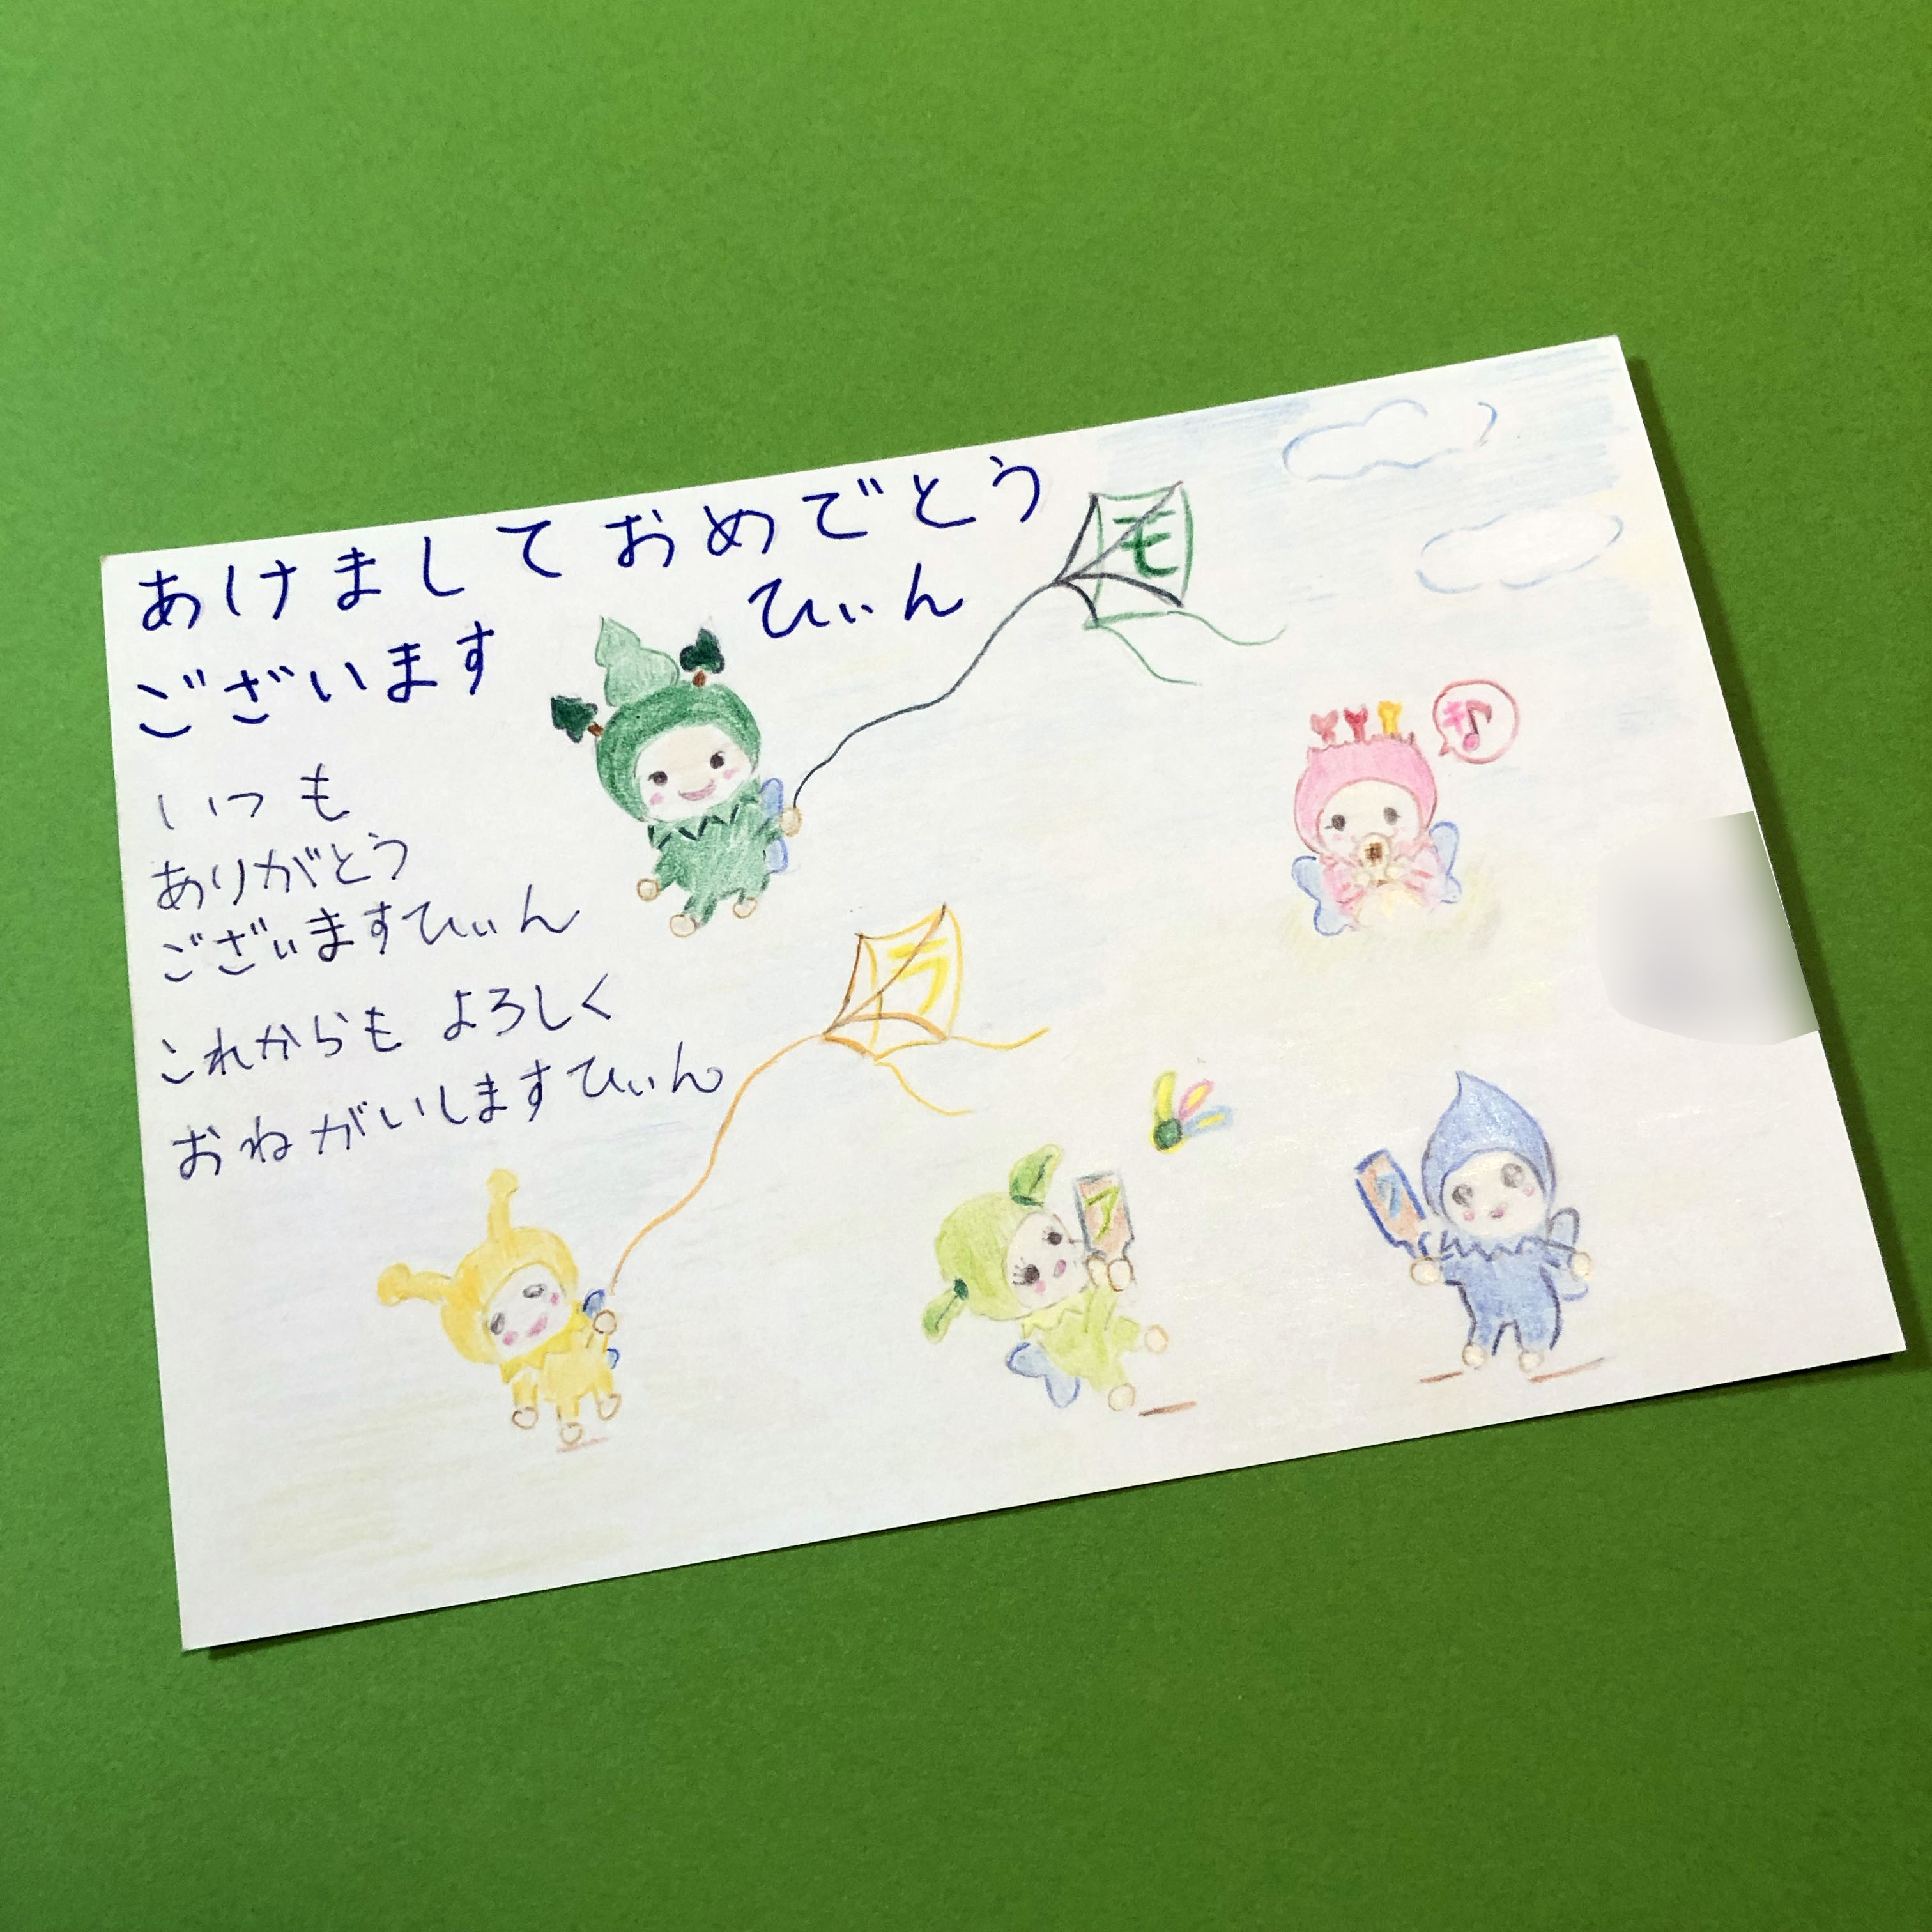 あけましておめでとう
ございます ひぃん
いつも
ありがとう
ございますひぃん
これからも よろしく
おねがいしますひぃん
も
キ♪
ラ
フ
ク